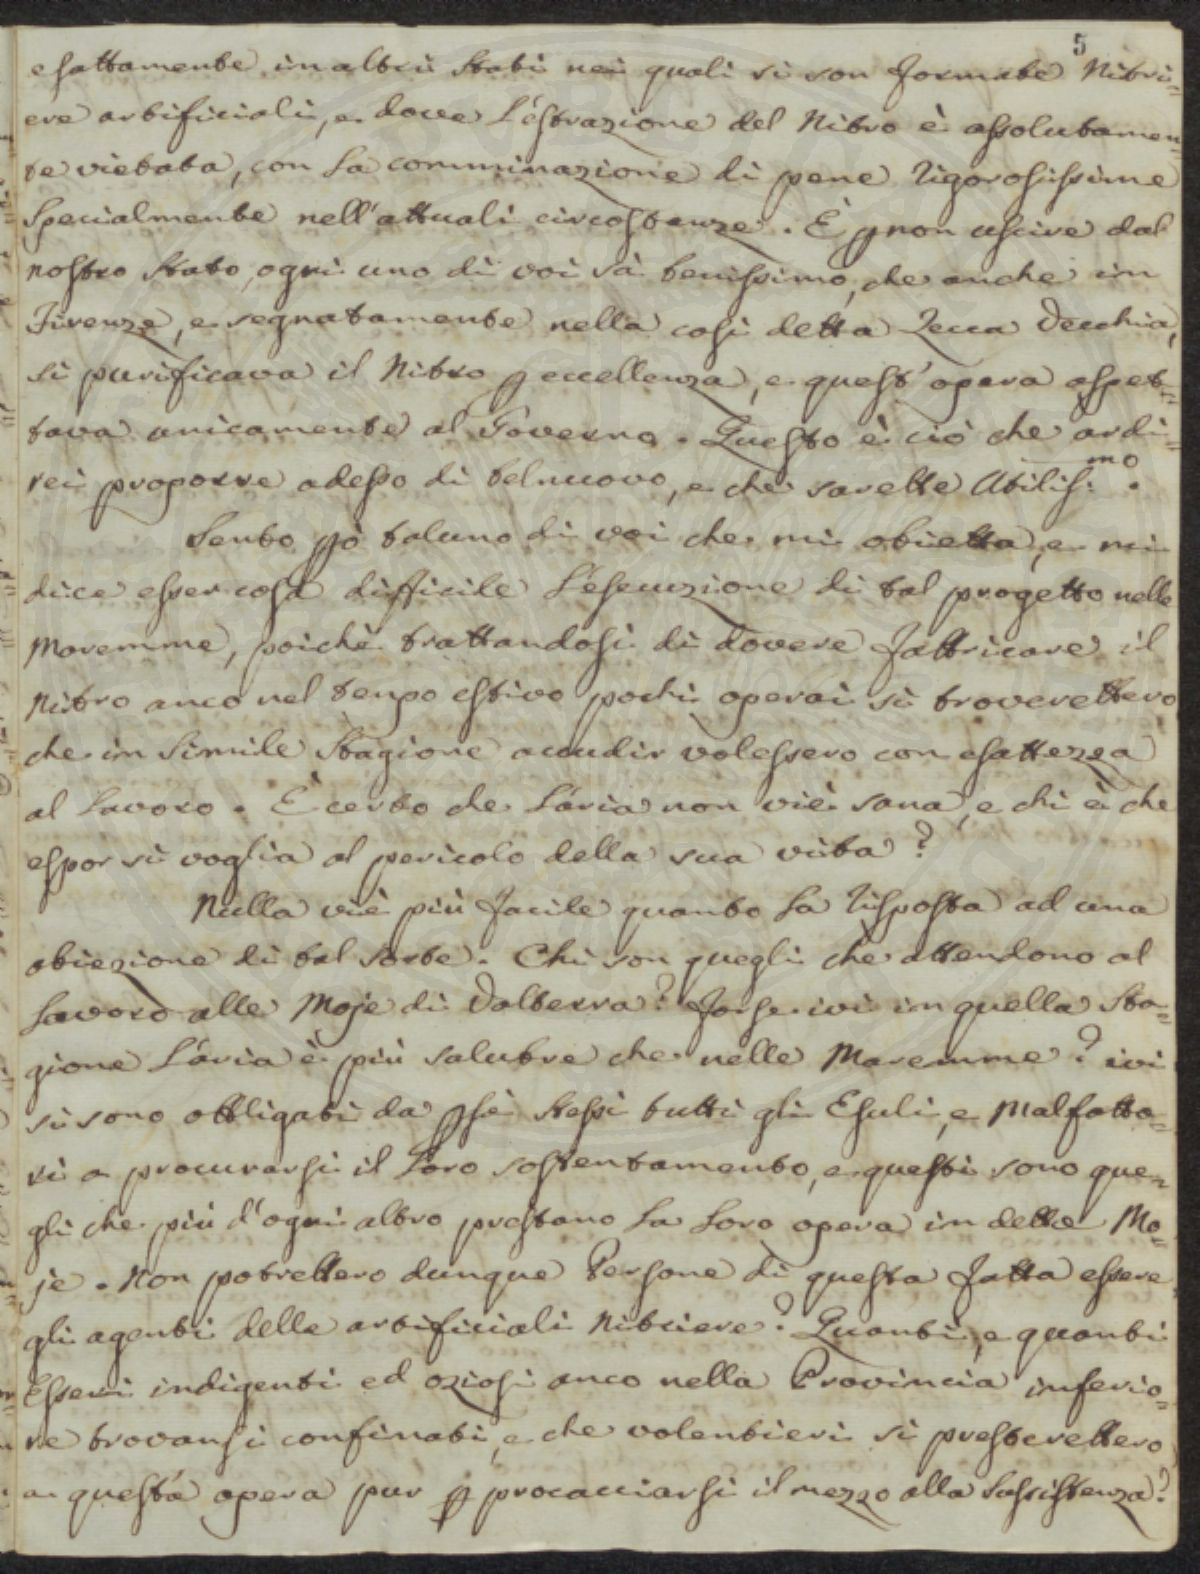 5
esattamente in altri Stati nei quali si son formate Nitri=
ere artificiali, e dove l'estrazione del Nitro è assolutamen=
te vietata, con la comminazione di pene rigorosissime
specialmente nell'attuali circostanze. E p non uscire dal
nostro Stato, ogni uno di voi sà benissimo, che anche in
Firenze, e segnatamente nella così detta Zecca Vecchia,
si purificava il Nitro p eccellenza, e quest'opera aspet=
tava unicamente al Governo. Questo è ciò che ardi=
rei proporre adesso di belnuovo, e che sarebbe Utiliss:mo.
Sento pò taluno di voi che mi obietta, e mi
dice esser cosa difficile l'esecuzione di tal progetto nelle
Maremme, poichè trattandosi di dovere fabbricare il
Nitro anco nel tempo estivo pochi operai si troverebbero
che in simile Stagione accudir volessero con esattezza
al lavoro. È certo che l'aria non viè sana, e chi è che
espor si voglia al pericolo della sua vita?
Nulla viè più facile quanto la risposta ad una
obiezione di tal sorte. Chi son quegli che attendono al
lavoro alle Moje di Volterra? Forse ivi in quella Sta=
gione l'aria è più salubre che nelle Maremme? ivi
si sono obbligati da p sè stessi tutti gli Esuli, e Malfatto=
ri a procurarsi il loro sostentamento, e questi sono que=
gli che più d'ogni altro prestano la loro opera in dette Mo=
je. Non potrebbero dunque Persone di questa fatta essere
gli agenti delle artificiali Nitriere? Quanti, e quanti
Esseri indigenti ed oziosi anco nella Provincia inferio=
re trovansi confinati, e che volentieri si presterebbero
a questa opera pur p procacciarsi il mezzo alla Sussistenza?